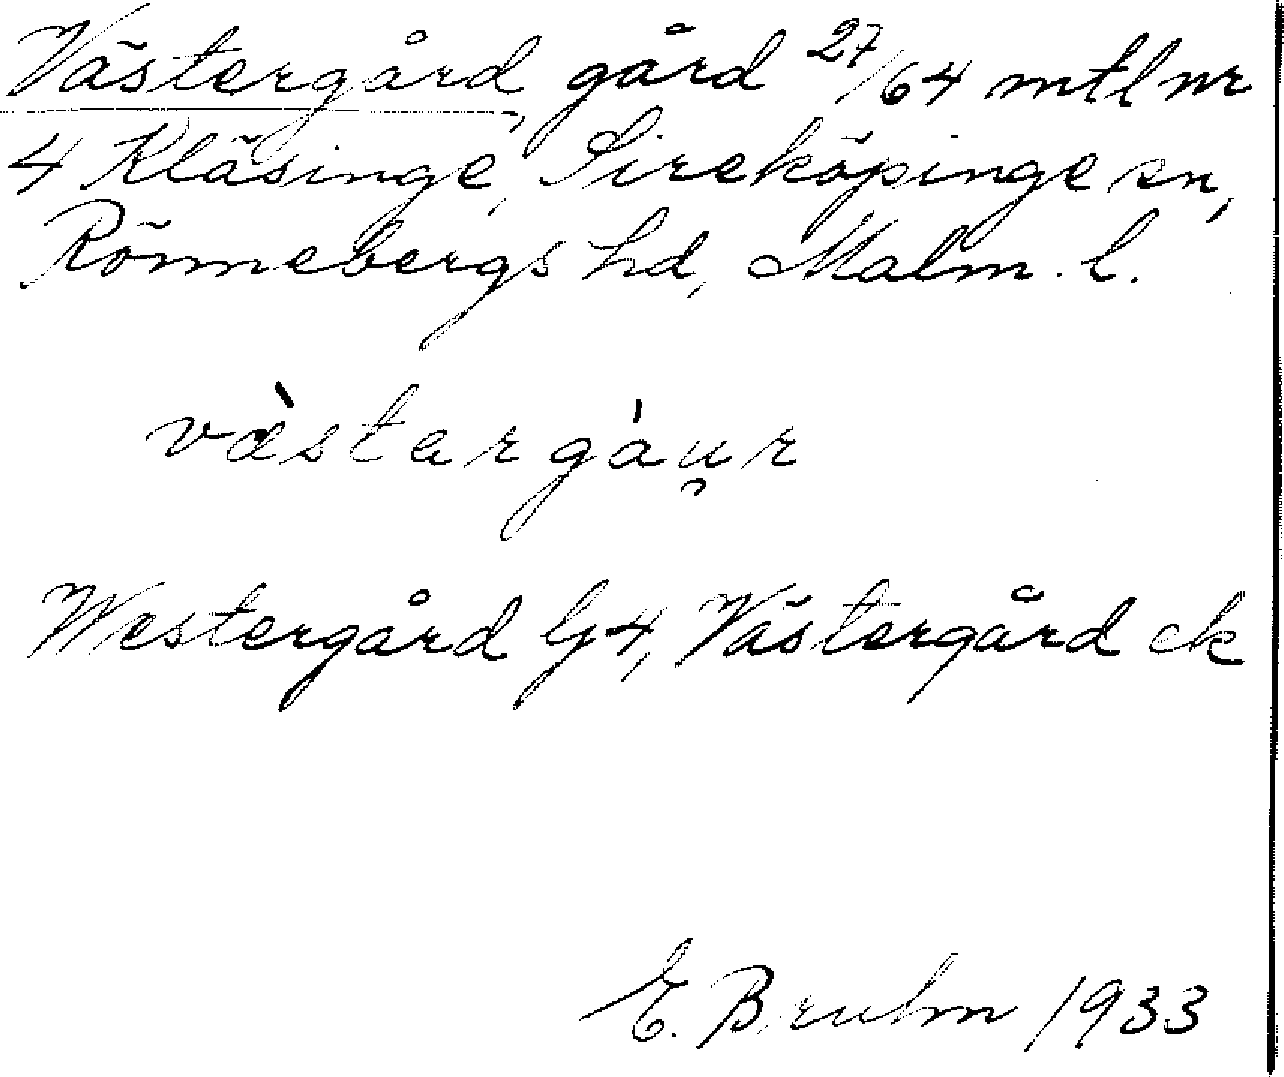 Västergård, gård 27/64 mtl nr
4 Kläsinge, Sireköpinge sn,
Rönnebergs hd, Malm. l.
væ̀stergáu̯r
Westergård G4, Västergård ek
E. Bruhn 1933